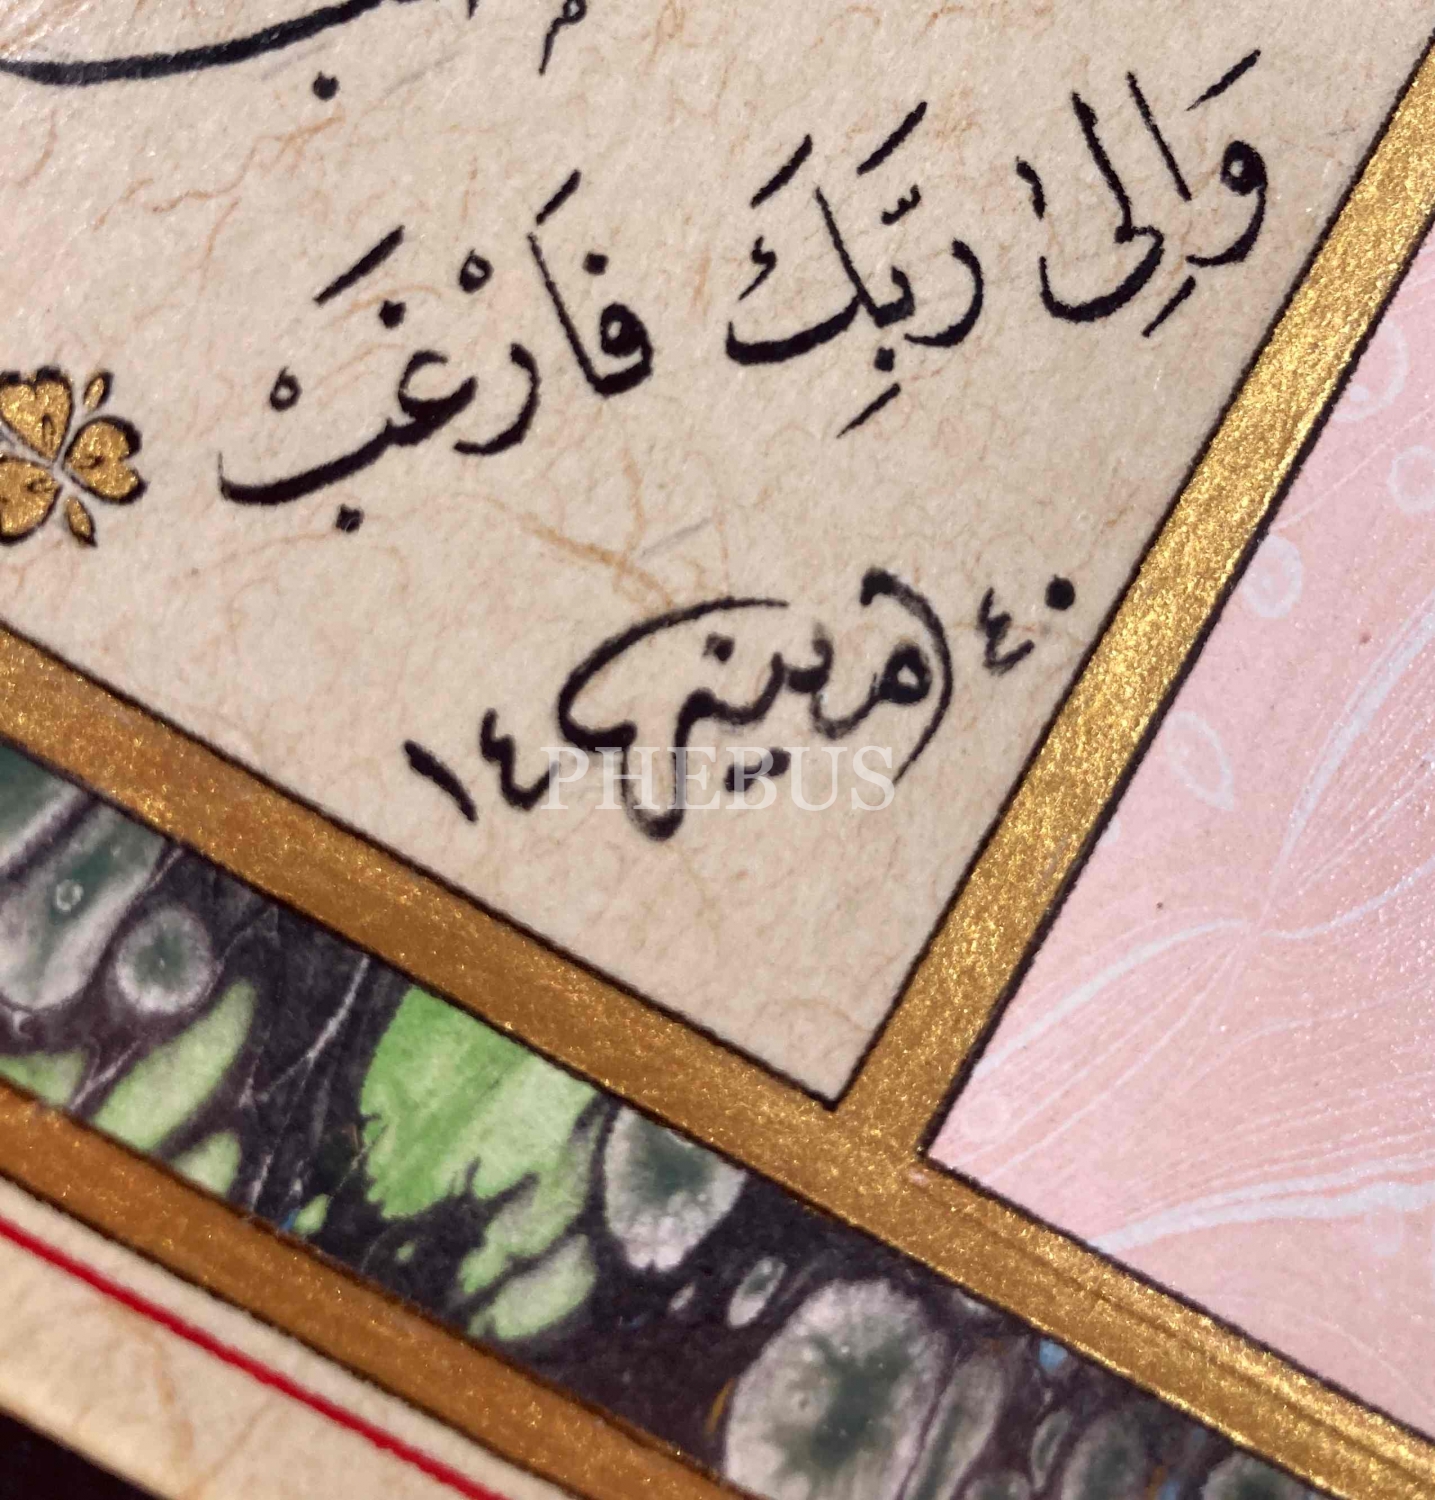 وَاِلىٰ رَبِّكَ فَارْغَبْ
١٤
٤٠
PHEBUS